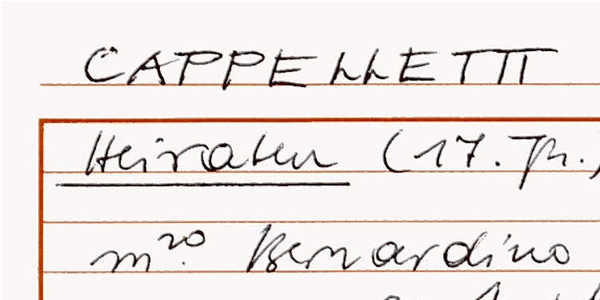 CAPPELLETTI
Heiraten (17. Jh.)
m.ro Bernardino